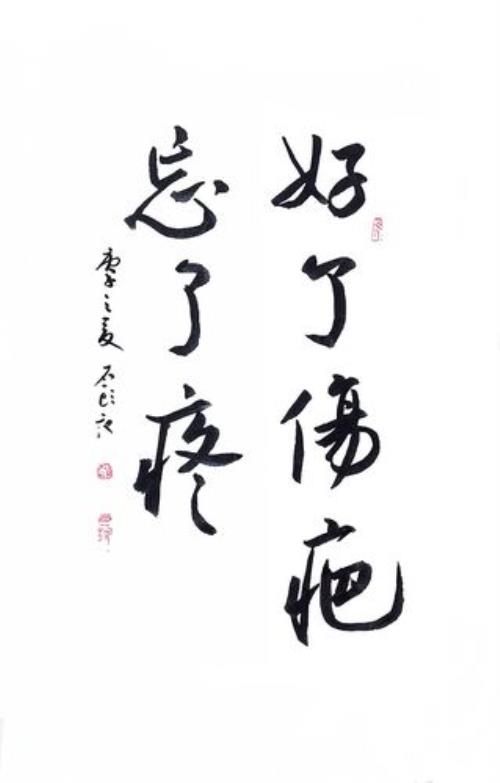 好了傷疤
忘了疼
之夏